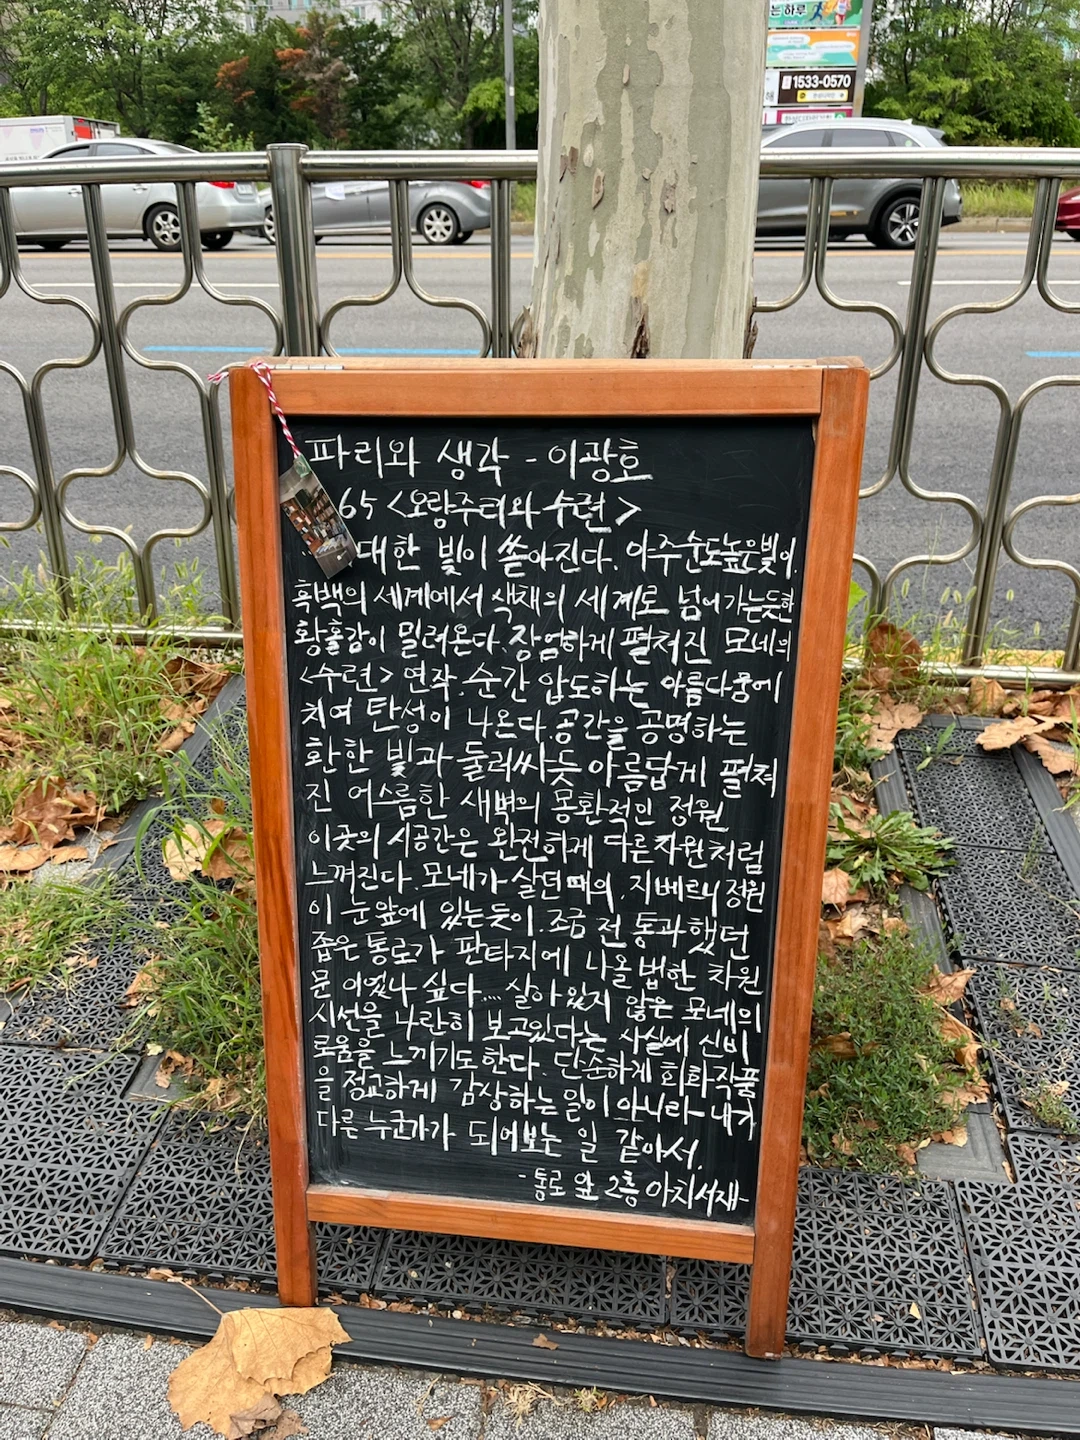 는 하루
1533-0570
해
파리와 생각 - 이광호
65 <오랑주리와 수련>
대한 빛이 쏟아진다. 아주 순도 높은 빛이.
흑백의 세계에서 색채의 세계로 넘어가는듯한
황홀감이 밀려온다. 장엄하게 펼쳐진 모네의
<수련> 연작. 순간 압도하는 아름다움에
치여 탄성이 나온다. 공간을 공명하는
환한 빛과 둘러싸듯 아름답게 펼쳐
진 어스름한 새벽의 몽환적인 정원
이곳의 시공간은 완전하게 다른 차원처럼
느껴진다. 모네가 살던 때의, 지베르니 정원
이 눈 앞에 있는듯이. 조금 전 통과했던
좁은 통로가 판타지에 나올 법한 차원
문 이였나 싶다.... 살아 있지 않은 모네의
시선을 나란히 보고있다는 사실에 신비
로움을 느끼기도 한다. 단순하게 회화작품
을 정교하게 감상하는 일이 아니라 내가
다른 누군가가 되어보는 일 같아서.
- 통로 앞 2층 아치서재-